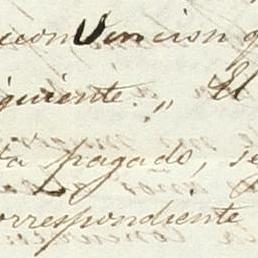 iconvencion q
iguiente.„ El
ta pagado, se
orrespondiente